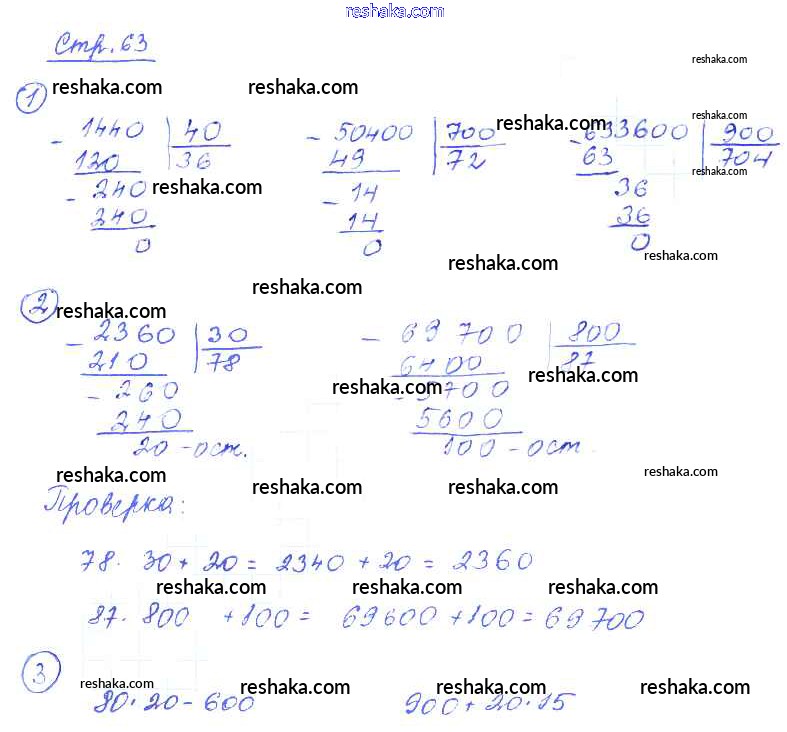 reshaka.com
Стр. 63
reshaka.com
reshaka.com reshaka.com
1
- 1440 | 40 - 50400 | 700 - 633600 | 900
reshaka.com reshaka.com
120 36 49 72 63 704
reshaka.com reshaka.com
- 240 - 14 36
240 14 36
0 0 0
reshaka.com reshaka.com
reshaka.com
2
reshaka.com
- 2360 | 30 - 69 700 | 800
210 78 6400 87
reshaka.com reshaka.com
- 260 - 5700
240 5600
20 - ост. 100 - ост.
reshaka.com reshaka.com reshaka.com reshaka.com
Проверка:
78 · 30 + 20 = 2340 + 20 = 2360
reshaka.com reshaka.com reshaka.com
87 · 800 + 100 = 69600 + 100 = 69700
3
reshaka.com reshaka.com reshaka.com reshaka.com
80 · 20 - 600 900 + 20 · 15